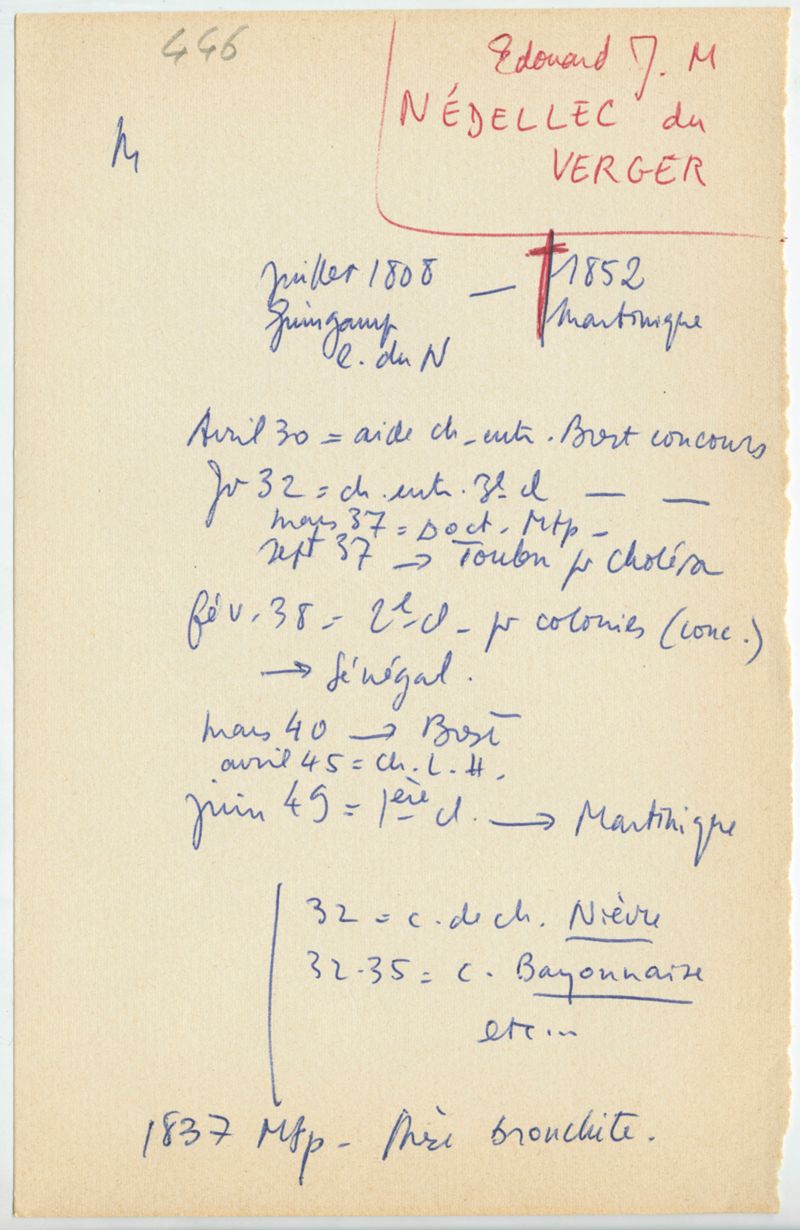 446
Edouard J. M
NÉDELLEC du
VERGER
M
juillet 1808 — † 1852
Guingamp Martinique
C. du N
Avril 30 = aide ch. entr. Brest concours
Jr 32 = ch. entr. 3e cl — —
mars 37 = Doct. Mtp -
sept 37 → Toulon pr choléra
fév. 38 = 2e cl - pr colonies (conc.)
→ Sénégal.
mars 40 → Brest
avril 45 = ch. L. H.
juin 49 = 1ère cl. → Martinique
32 = c. de ch. Nièvre
32-35 = c. Bayonnaise
etc...
1837 Mtp - thèse bronchite.